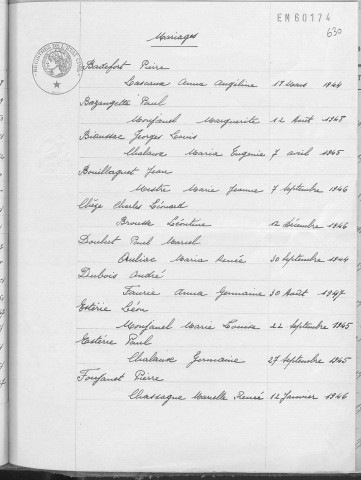 EM60174
630
Mariages
Badefort Pierre
Lascaux Anna Angéline 18 Mars 1944
Bozangette Paul
Monfanel Marguerite 12 Août 1948
Bianssac Georges Louis
Chalaux Maria Eugénie 7 avril 1945
Bouillaguet Jean
Mestre Marie Jeanne 7 Septembre 1946
Chèze Charles Léonard
Brousse Léontine 12 décembre 1946
Doublet Paul Marcel
Auliac Maria Renée 30 Septembre 1944
Dubois André
Faurie Anna Germaine 30 Août 1947
Estérie Léon
Monfanel Marie Louise 22 Septembre 1945
Estérie Paul
Chalaux Germaine 27 Septembre 1945
Foufanet Pierre
Chassagne Marcelle Renée 12 Janvier 1946